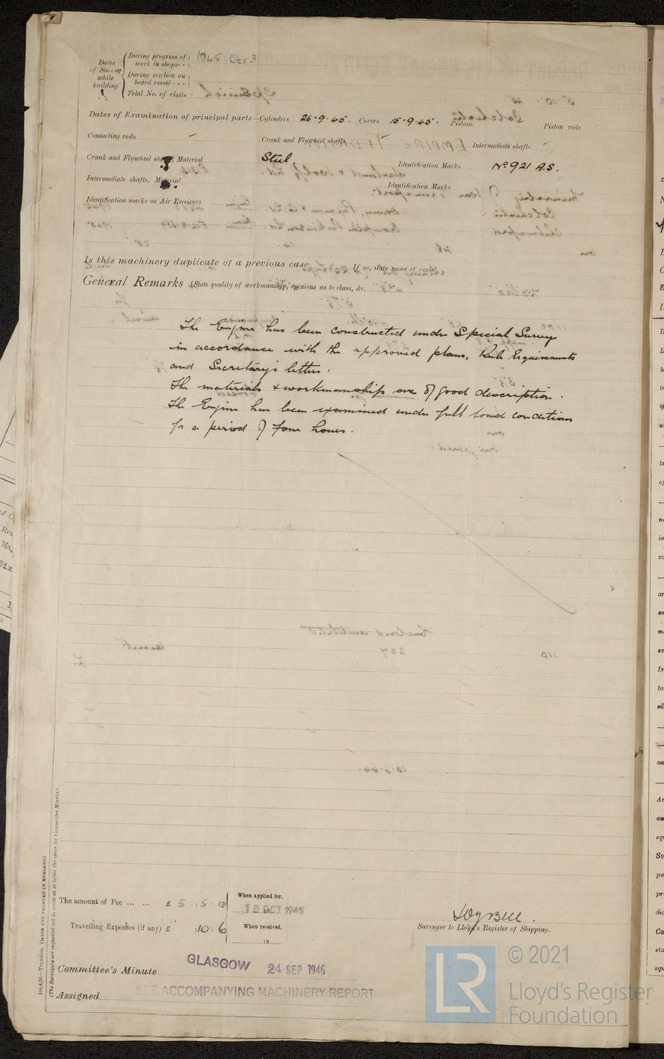 Dates of Survey while building
During progress of work in shops - - 1945 Oct 3
During erection on board vessel - - -
Total No. of visits
Dates of Examination of principal parts—Cylinders 26-9-45. Covers 15-9-45. Pistons Piston rods
Connecting rods Crank and Flywheel shafts Intermediate shafts
Crank and Flywheel shafts, Material Steel Identification Marks No 921 A.S.
Intermediate shafts, Material Identification Marks
Identification marks on Air Receivers
Is this machinery duplicate of a previous case If so, state name of vessel
General Remarks (State quality of workmanship, opinions as to class, &c.
The Engine has been constructed under Special Survey
in accordance with the approved plans, Rule Requirements
and Secretary's letters.
The materials & workmanship are of good description.
The Engine has been examined under full load conditions
for a period of four hours.
The amount of Fee ... ... £ 5 : 5 : 0
When applied for, 15 OCT 1945
Travelling Expenses (if any) £ : 10 : 6
When received,
19
Surveyor to Lloyd's Register of Shipping.
Committee's Minute GLASGOW 24 SEP 1946
Assigned SEE ACCOMPANYING MACHINERY REPORT
LR © 2021
Lloyd's Register
Foundation